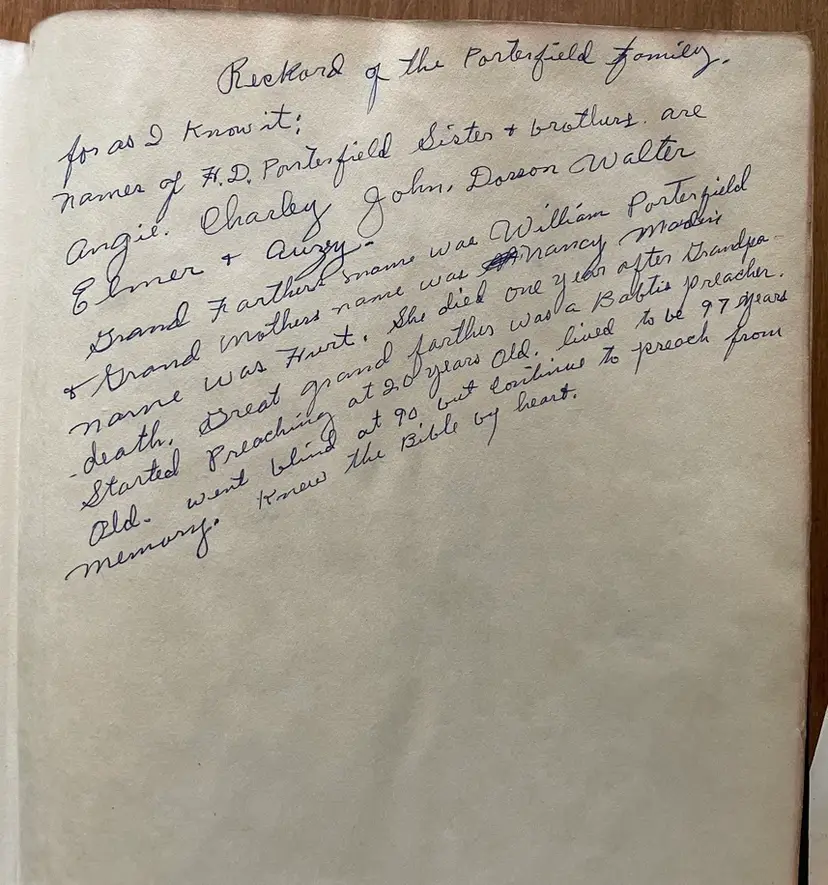 Reckard of the Porterfield family.
for as I Know it;
names of H.D. Porterfield Sister + brothers. are
Angie. Charley John. Dorson Walter
Elmer + Auzy.
Grand Farthers name was William Porterfield
+ Grand mothers name was Nancy Maden
name was Hurt. She died one year after Grandpa-
-death. Great grand farther was a Babtis preacher.
Started Preaching at 20 years Old. lived to be 97 years
Old. went blind at 90 but continue to preach from
memory. Knew the Bible by heart.